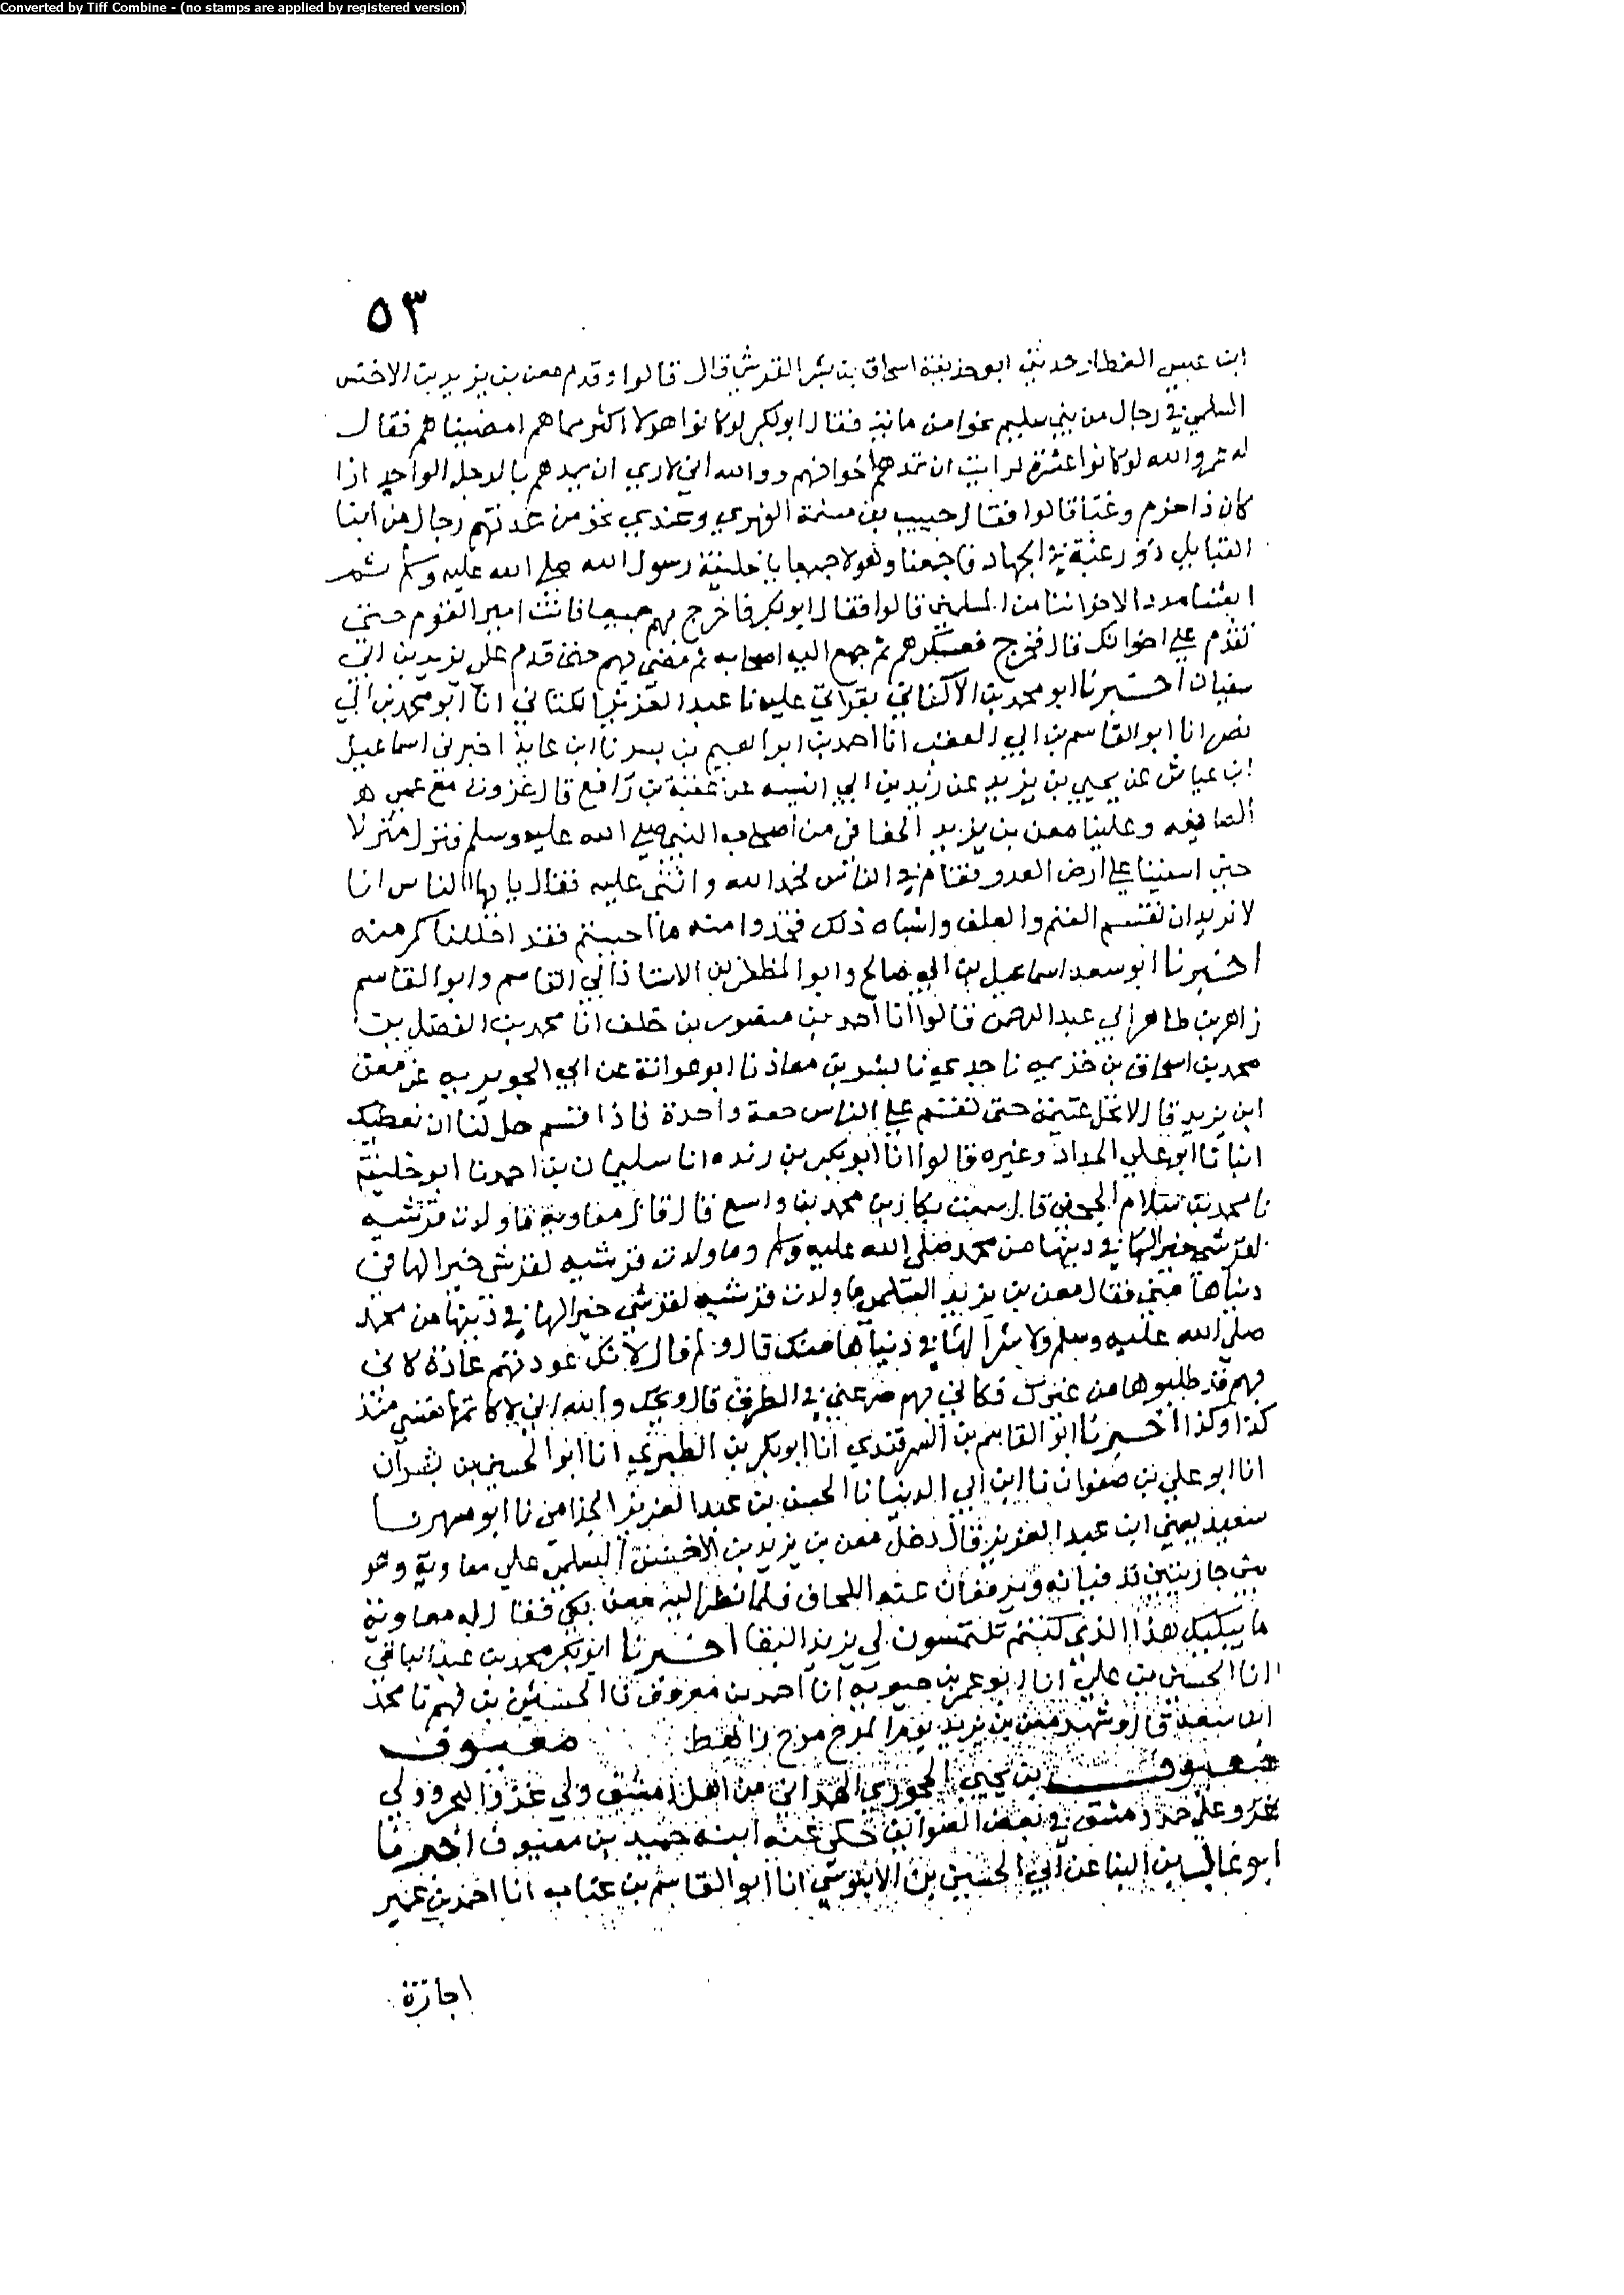 Converted by Tiff Combine - (no stamps are applied by registered version)
٥٣
ابن عيسى العطار حدثني ابو حذيفة اسحاق بن بشر القرشي قال قالوا وقدم معن بن يزيد بن الاخنس
السلمي في رجال من بني سليم نحوا من مائة فقال ابو بكر لو كانوا هولا اكثر مما هم امضيناهم فقال
له عمر والله لو كانوا عشرة لرايت ان تمدهم اخوانهم ووالله اني لاري ان يمدهم بالرجل الواحد اذا
كان ذا حزم وغنا قالوا فقال حبيب بن مسلمة الفهري وعندي نحو من عدتهم رجال من ابنا
القبايل ذو رغبة في الجهاد فاجمعنا وهولا جميعا يا خليفة رسول الله صلى الله عليه وسلم ثم
ابعثنا مددا لاخواننا من المسلمين قالوا فقال ابو بكر فاخرج بهم جميعا فانت امير القوم حتى
تقدم علي اخوانك قال فخرج فعسكرهم ثم جمع اليه اصحابه ثم مضى بهم حتى قدم على يزيد بن ابي
سفيان اخبرنا ابو محمد بن الاكفاني بقراتي عليه نا عبد العزيز الكتاني انا ابو محمد بن ابي
نصر انا ابو القاسم بن ابي العقب انا احمد بن ابراهيم بن بسر نا ابن عايذ اخبرني اسماعيل
ابن عياش عن يحيى بن يزيد عن زيد بن ابي انيسه عن عقبة بن رافع قال غزونا مع عمر
الصايفه وعلينا معن بن يزيد الخفافي من اصحاب النبي صلى الله عليه وسلم فنزل منزلا
حتى اسفينا على ارض العدو فقام في الناس فحمد الله واثنى عليه فقال يا ايها الناس انا
لا نريد ان نقتسم الغنم والعلف واشباه ذلك فخذوا منه ما احببتم فقد احللناكم منه
اخبرنا ابو سعد اسماعيل بن ابي صالح وابو المظفر بن الاستاذ ابي القاسم وابو القاسم
زاهر بن طاهر ابي عبد الرحمن قالوا انا احمد بن منصور بن خلف انا محمد بن الفضل بن
محمد بن اسحاق بن خزيمه نا جدي نا بشر بن معاذ نا ابو عوانة عن ابي الجويريه عن معن
ابن يزيد قال لا تحل غنيمة حتى تقسم على الناس جملة واحدة فاذا قسم حل لنا ان نعطيك
انبانا ابو علي الحداد وغيره قالوا انا ابو بكر بن رنده انا سليمان بن احمد نا ابو خليفة
نا محمد بن سلام الجمحي قال سمعت بكار بن محمد بن واسع قال قال معاوية ما ولدت قرشيه
لقرشي خيرا لها في دينها من محمد صلى الله عليه وسلم وما ولدت قرشيه لقرشي خيرا لها في
دنياها مني فقال معن بن يزيد السلمي ما ولدت قرشيه لقرشي خيرا لها في دينها من محمد
صلى الله عليه وسلم ولا شرا لها في دنياها منك قال ولم قال لانك عودتهم عادة كاني
بهم قد طلبوها من غيرك فكاني بهم صرعى في الطرق قال ويحك والله اني لاكاتمها نفسي منذ
كذا وكذا اخبرنا ابو القاسم بن السمرقندي انا ابو بكر بن الطبري انا ابو الحسين بن بشران
انا ابو علي بن صفوان نا ابن ابي الدنيا نا الحسن بن عبد العزيز الجذامي نا ابو مسهر نا
سعيد يعني ابن عبد العزيز قال دخل معن بن يزيد بن الاخنس السلمي علي معاوية وهو
بين جاريتين تدفيانه وترفعان عنه اللحاف فلما نظر اليه معن بكي فقال له معاوية
ما يبكيك هذا الذي كنتم تلتمسون لي يريد البقا اخبرنا ابو بكر محمد بن عبد الباقي
انا الحسن بن علي انا ابو عمر بن حيويه انا احمد بن معروف نا الحسين بن فهم نا محمد
ابن سعد قال وشهد معن بن يزيد يوم المرج مرج راهط معيوف
معيوف بن يحيى الحجوري الهمداني من اهل دمشق ولي غزو البحر وولي
غزو على جند دمشق في بعض الصوايف حكى عنه ابنه حميد بن معيوف اخبرنا
ابو غالب بن البنا عن ابي الحسين بن الابنوسي انا ابو القاسم بن عتاب انا احمد بن عمير
اجازة